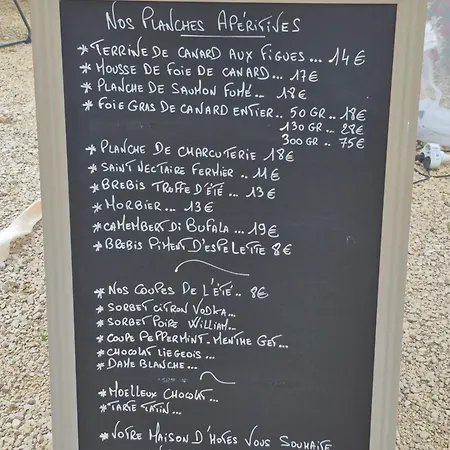 Nos Planches Apéritives
* Terrine de canard aux figues... 14€
* Mousse de foie de canard... 17€
* Planche de saumon fumé... 18€
* Foie gras de canard entier.. 50 gr.. 18€
130 gr.. 28€
300 gr.. 75€
* Planche de charcuterie 18€
* Saint Nectaire fermier.. 11€
* Brebis truffe d'été.. 13€
* Morbier... 13€
* Camembert di bufala... 19€
* Brebis piment d'Espelette 8€
* Nos coupes de l'été.. 8€
* Sorbet citron vodka...
* Sorbet poire William...
* Coupe peppermint. menthe get...
* Chocolat liegeois...
* Dame blanche...
* Moelleux chocolat...
* Tarte tatin...
* Votre maison d'hotes vous souhaite